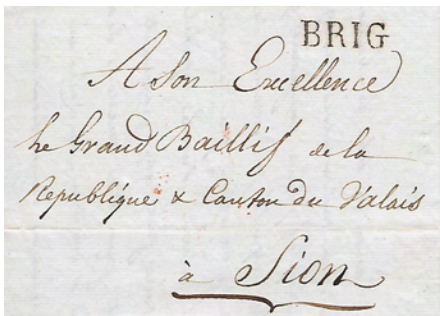 BRIG
A Son Excellence
Le Grand Baillif de la
Republique & Canton du Valais
à Sion